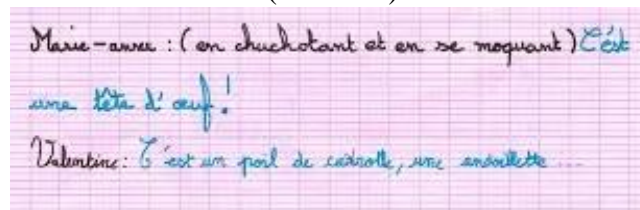 Marie-anne : (en chuchotant et en se moquant) C'est
une tête d'œuf !
Valentine : C'est un poil de carotte, une andouillette ...